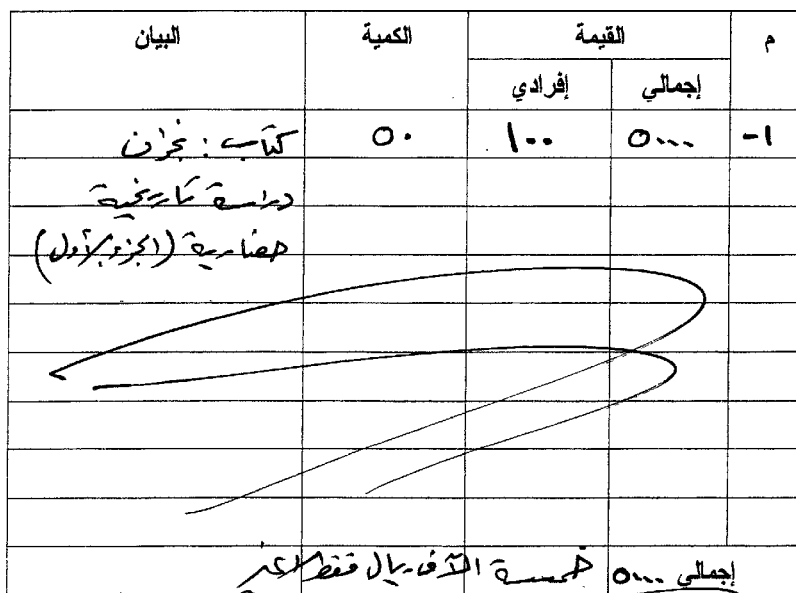 م القيمة الكمية البيان
إجمالي إفرادي
١- ٥٠٠٠ ١٠٠ ٥٠ كتاب : نجران
دراسة تاريخية
حضارية (الجزء الأول)
إجمالي ٥٠٠٠ خمسة الآف ريال فقط لاغير